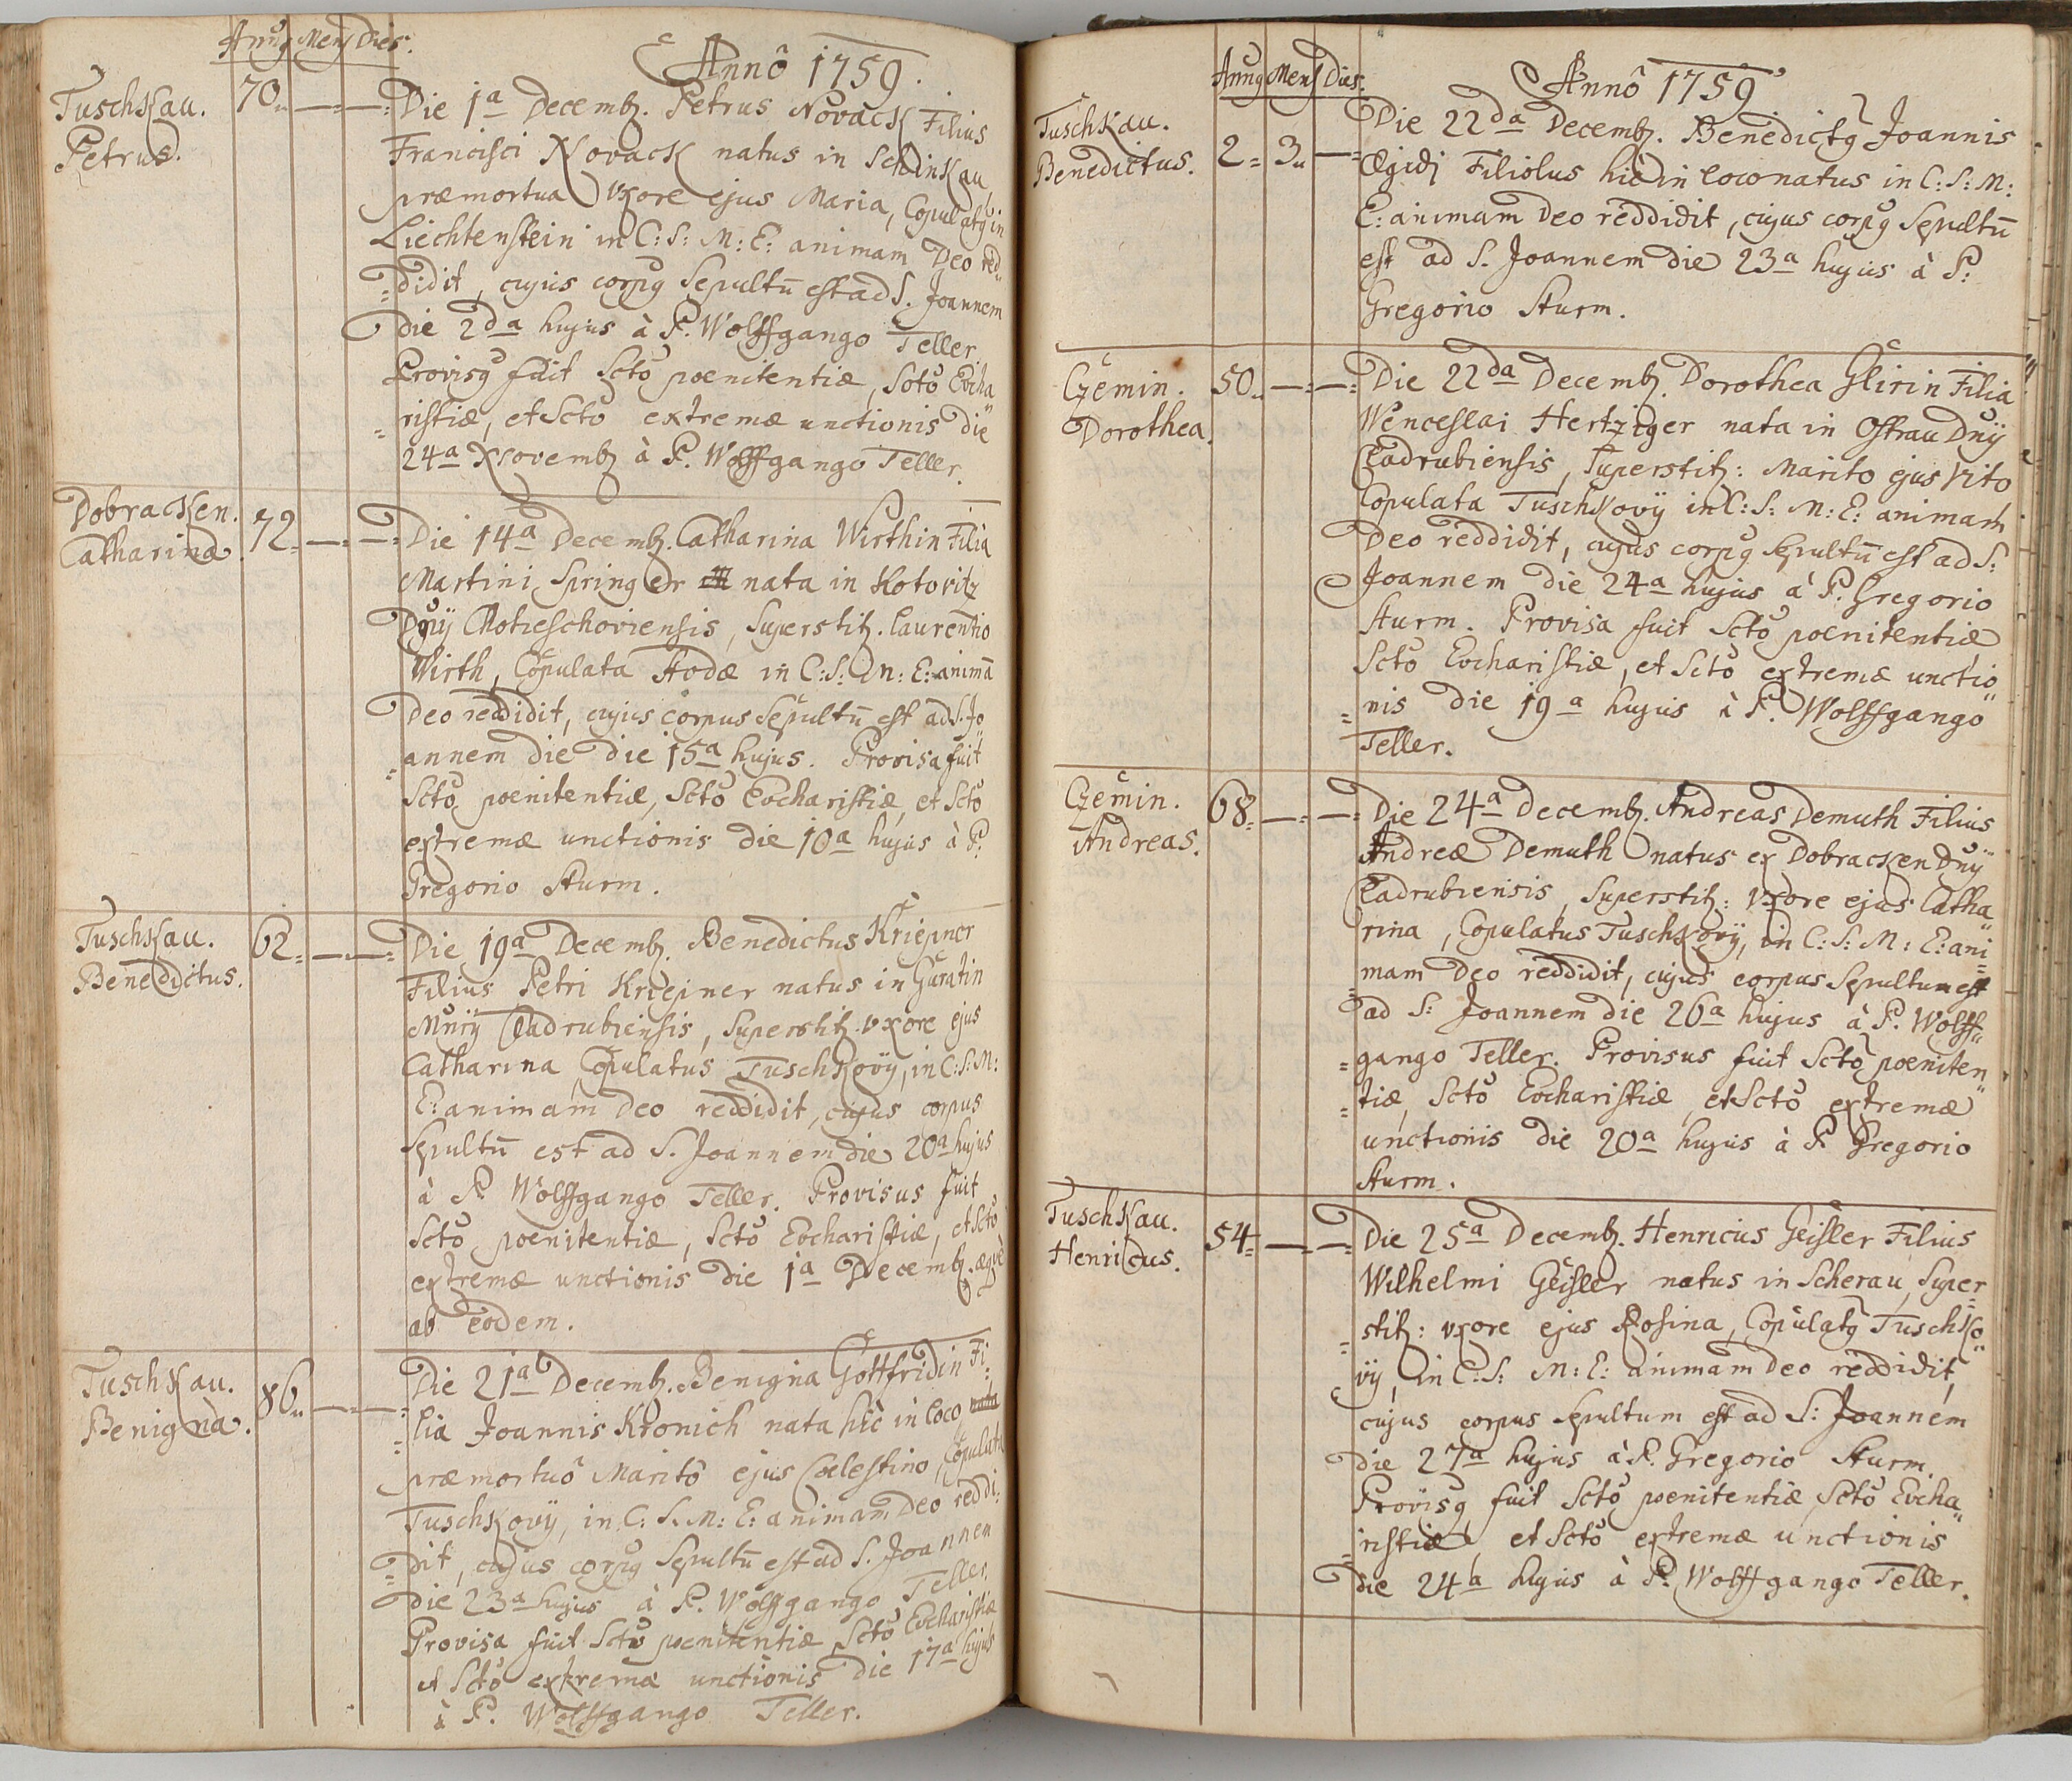 Annus Mens Dies.
Annô 1759.
Tuschkau.
Petrus.
70.
Die 1a Decemb. Petrus Novack Filius
Francisci Novack natus in Schinkau
præmortua Uxore ejus Maria, Copulatus in
Liechtenstein in C: S: M: E: animam Deo red=
=didit, cujus corpus Sepultū est ad S. Joannem
Die 2da hujus à P. Wolffgango Teller.
Provisus fuit Sctô poenitentiæ, Sctô Eucha
=ristiæ, et Sctô extremæ unctionis die
24a Novemb à P. Wolffgango Teller.
Dobracken.
Catharina.
72.
Die 14a Decemb. Catharina Wirthin Filia
Martini Springer nata in Kotovitz
Dnÿ Chotieschoviensis, Superstit. Laurentio
Wirth, Copulata Stodæ in C: S: M: E: animā
Deo reddidit, cujus corpus Sepultū est ad S. Jo
=annem die die 15a hujus. Provisa fuit
Sctô poenitentiæ, Sctô Eucharistiæ, et Sctô
extremæ unctionis die 10a hujus à P.
Gregorio Sturm.
Tuschkau.
Benedictus.
62=
Die 19a Decemb. Benedictus Kriepner
Filius Petri Kriepner natus in Guratin
Mnÿ Cladrubiensis, Superstit. Uxore ejus
Catharina Copulatus Tuschkovÿ, in C: S: M:
E: animam Deo reddidit, cujus corpus
Sepultū est ad S. Joannem die 20a hujus
à P. Wolffgango Teller. Provisus fuit
Sctô poenitentiæ, Sctô Eucharistiæ, et Sctô
extremæ unctionis die 1a Decemb. æquè
ab eodem.
Tuschkau.
Benigna.
86.
Die 21a Decemb. Benigna Gottfridin Fi=
=lia Joannis Kronich nata hîc in loco
præmortuô Maritô ejus Coelestino, Copulata
Tuschkovÿ, in C: S. M: E: animam Deo reddi=
=dit, cujus corpus Sepultū est ad S. Joannem
Die 23a hujus à P. Wolffgango Teller.
Provisa fuit Sctô poenitentiæ Sctô Eucharistiæ
et Sctô extremæ unctionis die 17a hujus
à P. Wolffgango Teller.
Annus Mens Dies.
Annô 1759
Tuschkau.
Benedictus.
2= 3.
Die 22da Decemb. Benedictus Joannis
Ægidj Filiolus hîc in loco natus in C: S: M:
E: animam Deo reddidit, cujus corpus Sepultū
est ad S. Joannem die 23a hujus à P:
Gregorio Sturm.
Czemin.
Dorothea.
50.
Die 22da Decemb. Dorothea Glirin Filia
Wenceslai Hertziger nata in Ostrau Dnÿ
Cladrubiensis, Superstit: Marito ejus Vito
Copulata Tuschkovÿ in C: S: M: E: animam
Deo reddidit, cujus corpus Sepultū est ad S:
Joannem die 24a hujus à P. Gregorio
Sturm. Provisa fuit Sctô poenitentiæ
Sctô Eucharistiæ, et Sctô extremæ unctio
=nis die 19a hujus à P. Wolffgango
Teller.
Czemin.
Andreas.
68=
Die 24a Decemb. Andreas Demuth Filius
Andreæ Demuth natus ex Dobracken Dnÿ
Cladrubiensis, Superstit: Uxore ejus Catha
rina, Copulatus Tuschkovÿ, in C: S: M: E: ani
=mam Deo reddidit, cujus corpus Sepultum est
ad S: Joannem die 26a hujus à P. Wolff=
=gango Teller. Provisus fuit Sctô poeniten
=tiæ, Sctô Eucharistiæ, et Sctô extremæ
unctionis die 20a hujus à P. Gregorio
Sturm.
Tuschkau.
Henricus.
54=
Die 25a Decemb. Henricus Geisler Filius
Wilhelmi Geisler natus in Scherau, Super=
=stit: uxore ejus Rosina, Copulatus Tuschko
vÿ, in C: S: M: E: animam Deo reddidit,
cujus corpus Sepultum est ad S: Joannem
Die 27a hujus à P. Gregorio Sturm.
Provisus fuit Sctô poenitentiæ Sctô Eucha
=ristiæ, et Sctô extremæ unctionis
Die 24a hujus à P. Wolffgango Teller.